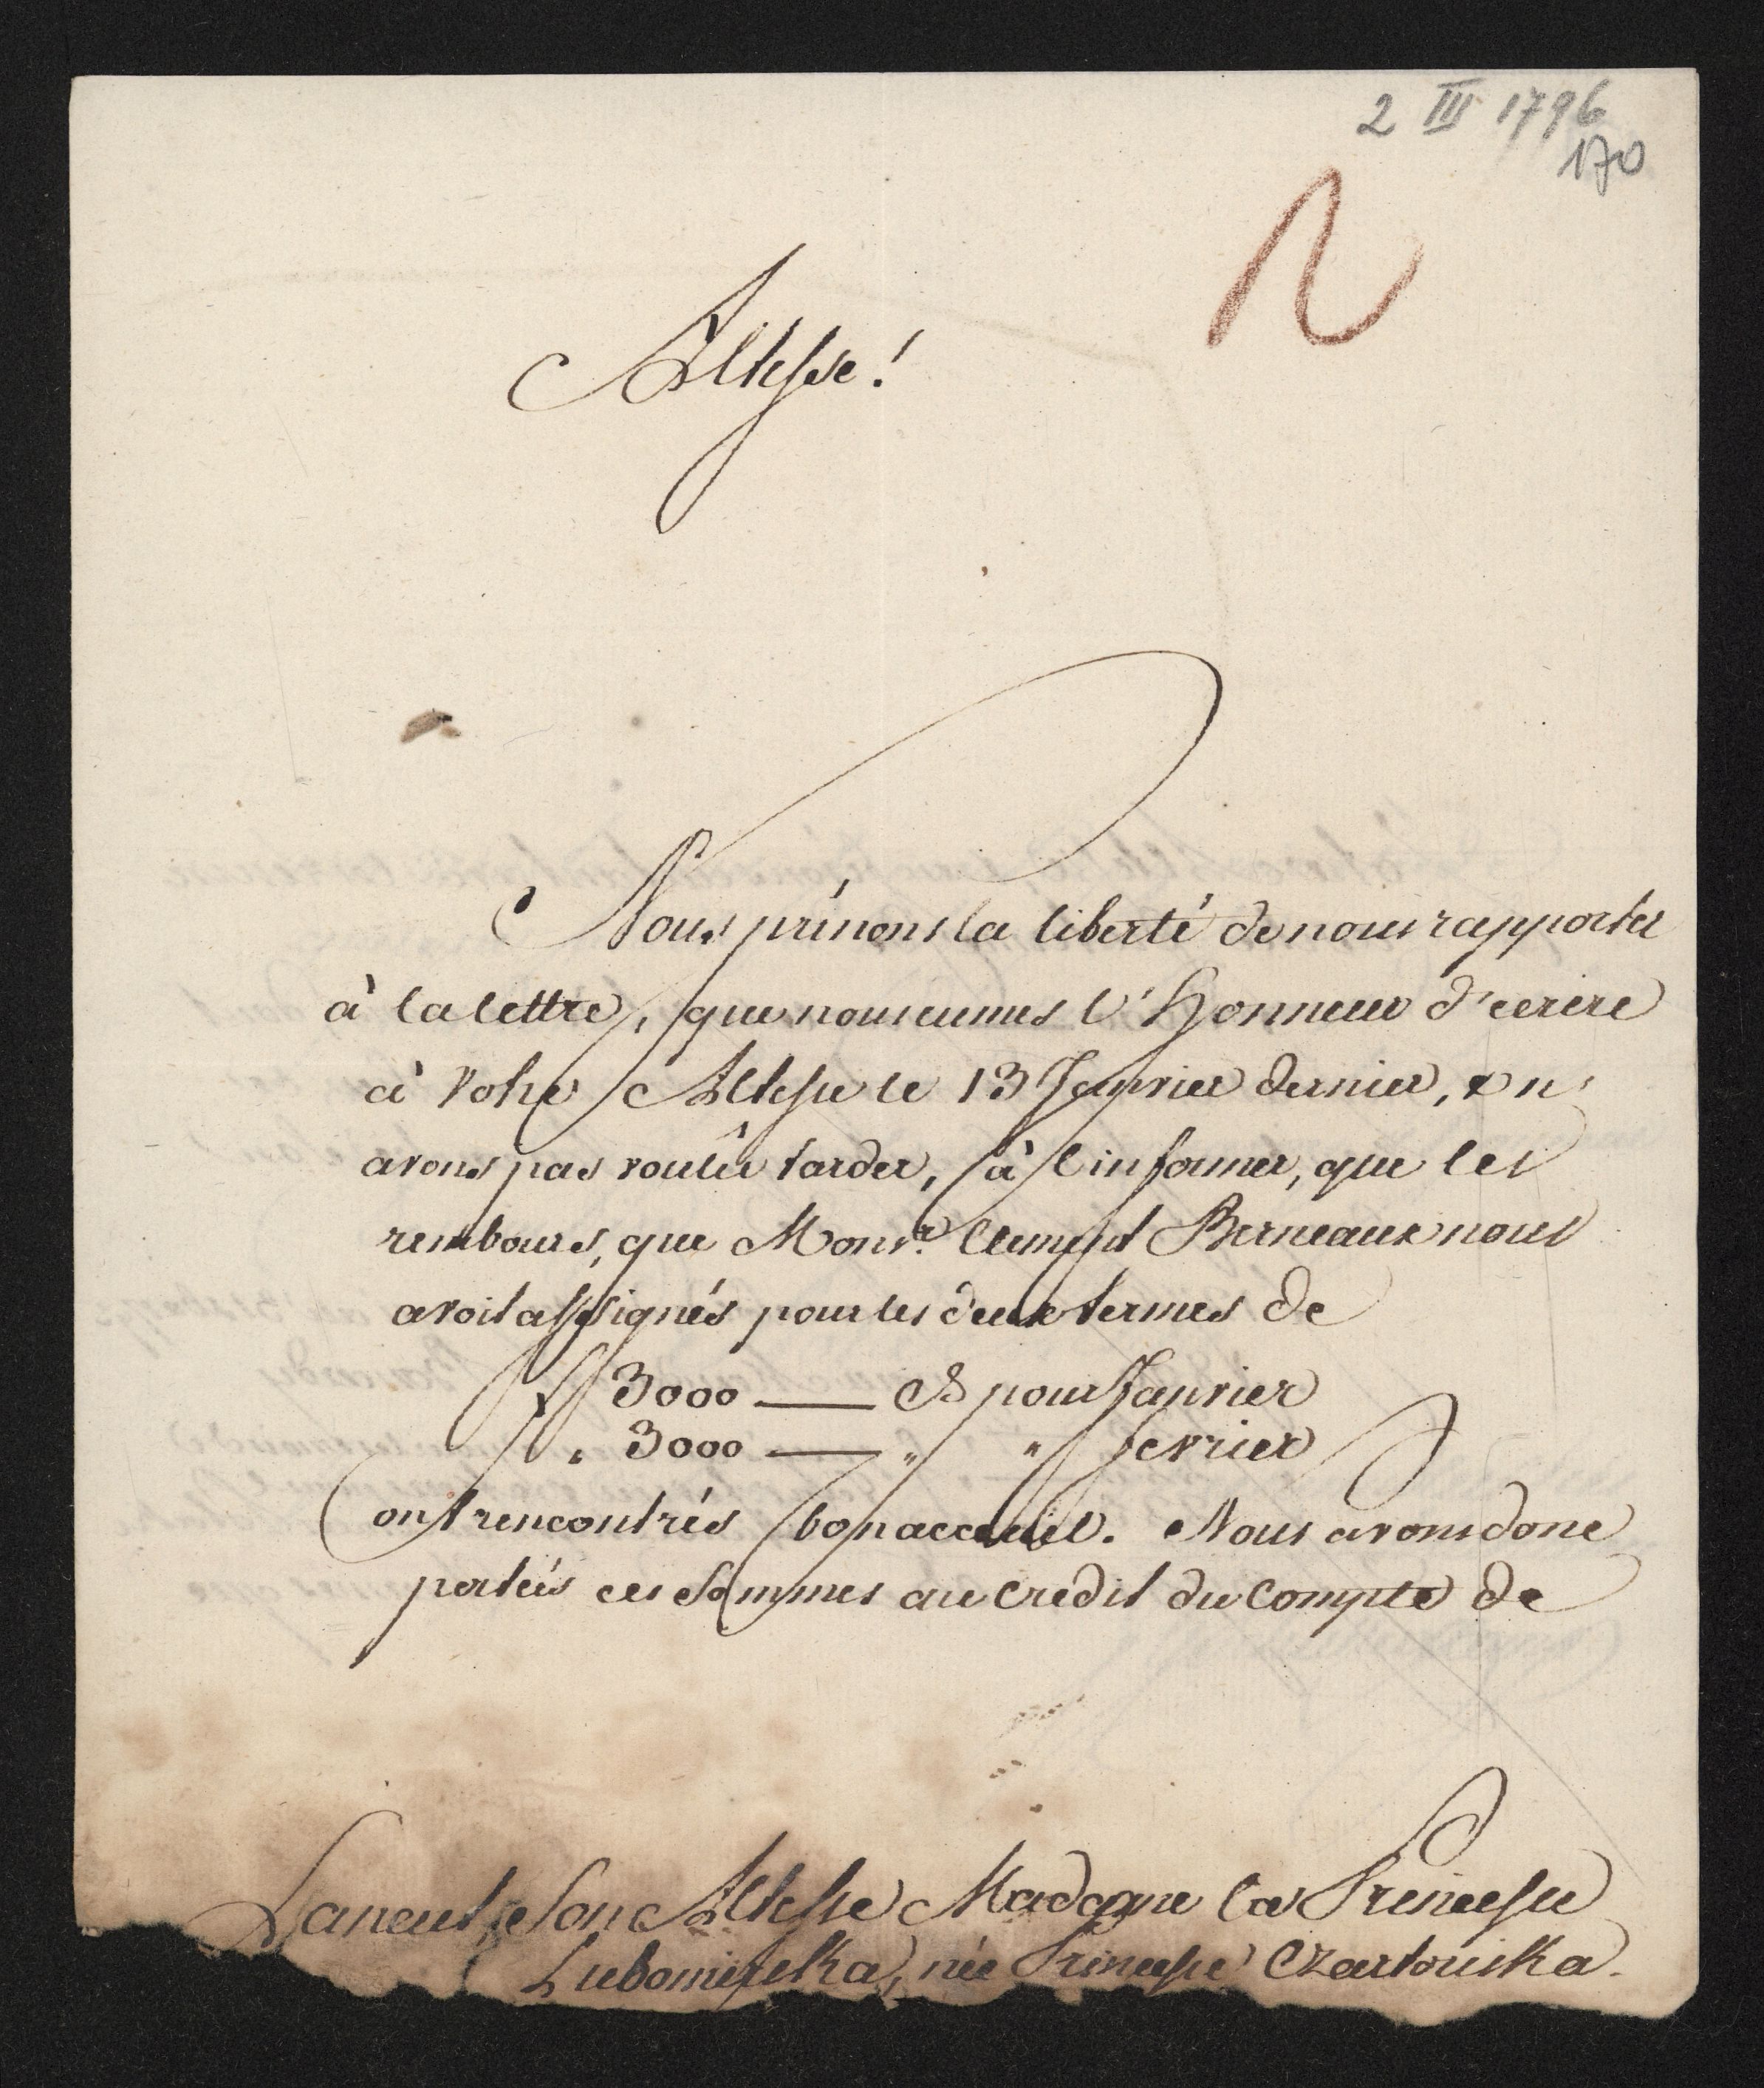 2 III 1796
170
Altesse!
Nous prénons la liberté de nous rapporter
à la lettre, que nous eumes l'Honneur d'ecrire
à Votre Altesse le 13 Janvier dernier, & n'
avons pas voulû tarder, à l'informer, que les
rembours, que Monsr. Clement Berneaux nous
avoit assignés pour les deux termes de
3000 — pour Janvier
" 3000 — " " fevrier
ont rencontrés bon accueil. Nous avons donc
portés ces Sommes au credit du Compte de
Lancut Son Altesse Madame la Princesse
Lubomirska, née Princesse Czartoriska.